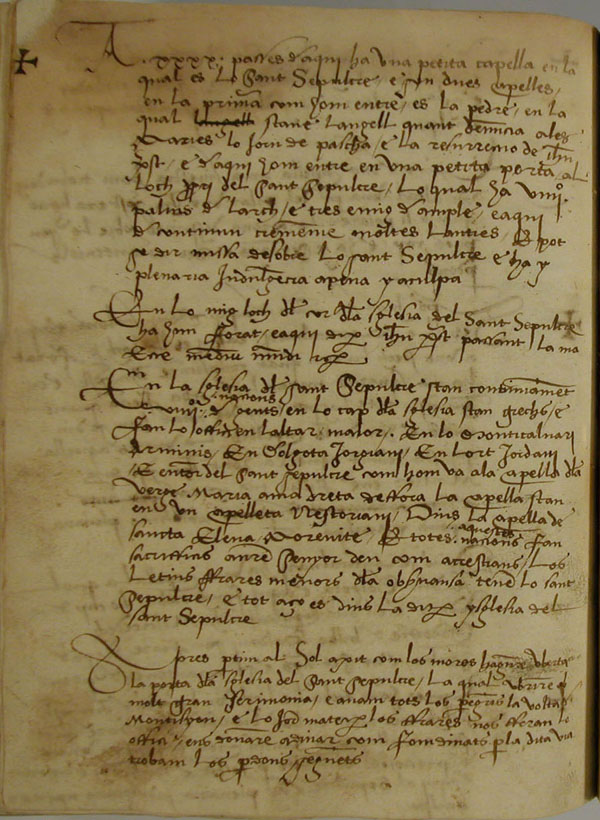 A .xxxx. passes daqui ha una petita capella en la
qual es lo Sant Sepulcre, e son dues capelles,
en la prima com hom entre, es la pedre, en la
qual stave langell quant denūcia a les
Maries lo jorn de pascha, e la resurrectio de Jhū
xpst, e daqui hom entre en una petita porta al
loch ppri del Sant Sepulcre, lo qual ha viiijº
palms d larch, e tres e mig d ample, e aqui
d continuu cremēne moltes lanties, E pot
se dir missa desobre lo sant Sepulcre e ha y
plenaria Indulgēcia a pena y a culpa
En lo mig loch dl cor dla sglesia del Sant Sepulcre
ha hun fforat, e aqui dix Jhū xpst passant la ma
Ecce mediu mūdi
En la sglesia dl Sant Sepulcre stan continuamēt
nacions
de viiijº d gents, en lo cap dla sglesia stan grechs, e
fan lo offici en laltar maior, En lo Monticalvari
Arminis, En Golgota Jorgiani, En lort Jordani
E entor del Sant Sepulcre com hom va a la capella dla
verge Maria a ma dreta de ffora la capella stan
en un capelleta Nestoriani, Dins la capella de
aquestes
sancta Elena, E totes nacions fan
sacrifficis a nre Senyor deu com a crestians, Los
Letins ffrares menors dla obsuansa tenē lo sant
Sepulcre, E tot aço es dins la dita ysglesia del
sant Sepulcre
Apres ptim al Sol axit com los moros hagorē uberta
la porta dla sglesia del Sant Sepulcre, la qual
molt gran serimonia, e anam tots los la volta
Montisyon, e lo jorn mateix los ffrares nos fferan lo
offici, ens donarē a dinar, com fom dinats p la dita via
trobam los pdons segnets